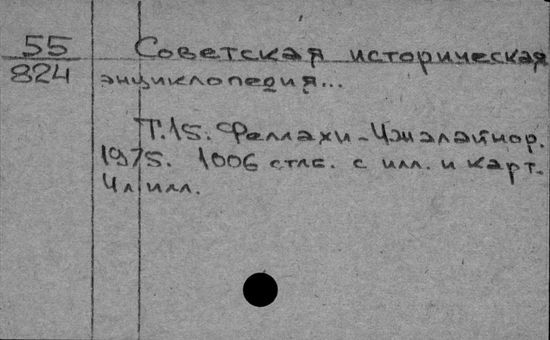 55
824
Советская историческая
энциклопедия...
Т.15. Феллахи-Чжалайнор.
1975. 1006 стлб. с илл. и карт.
4 л илл.